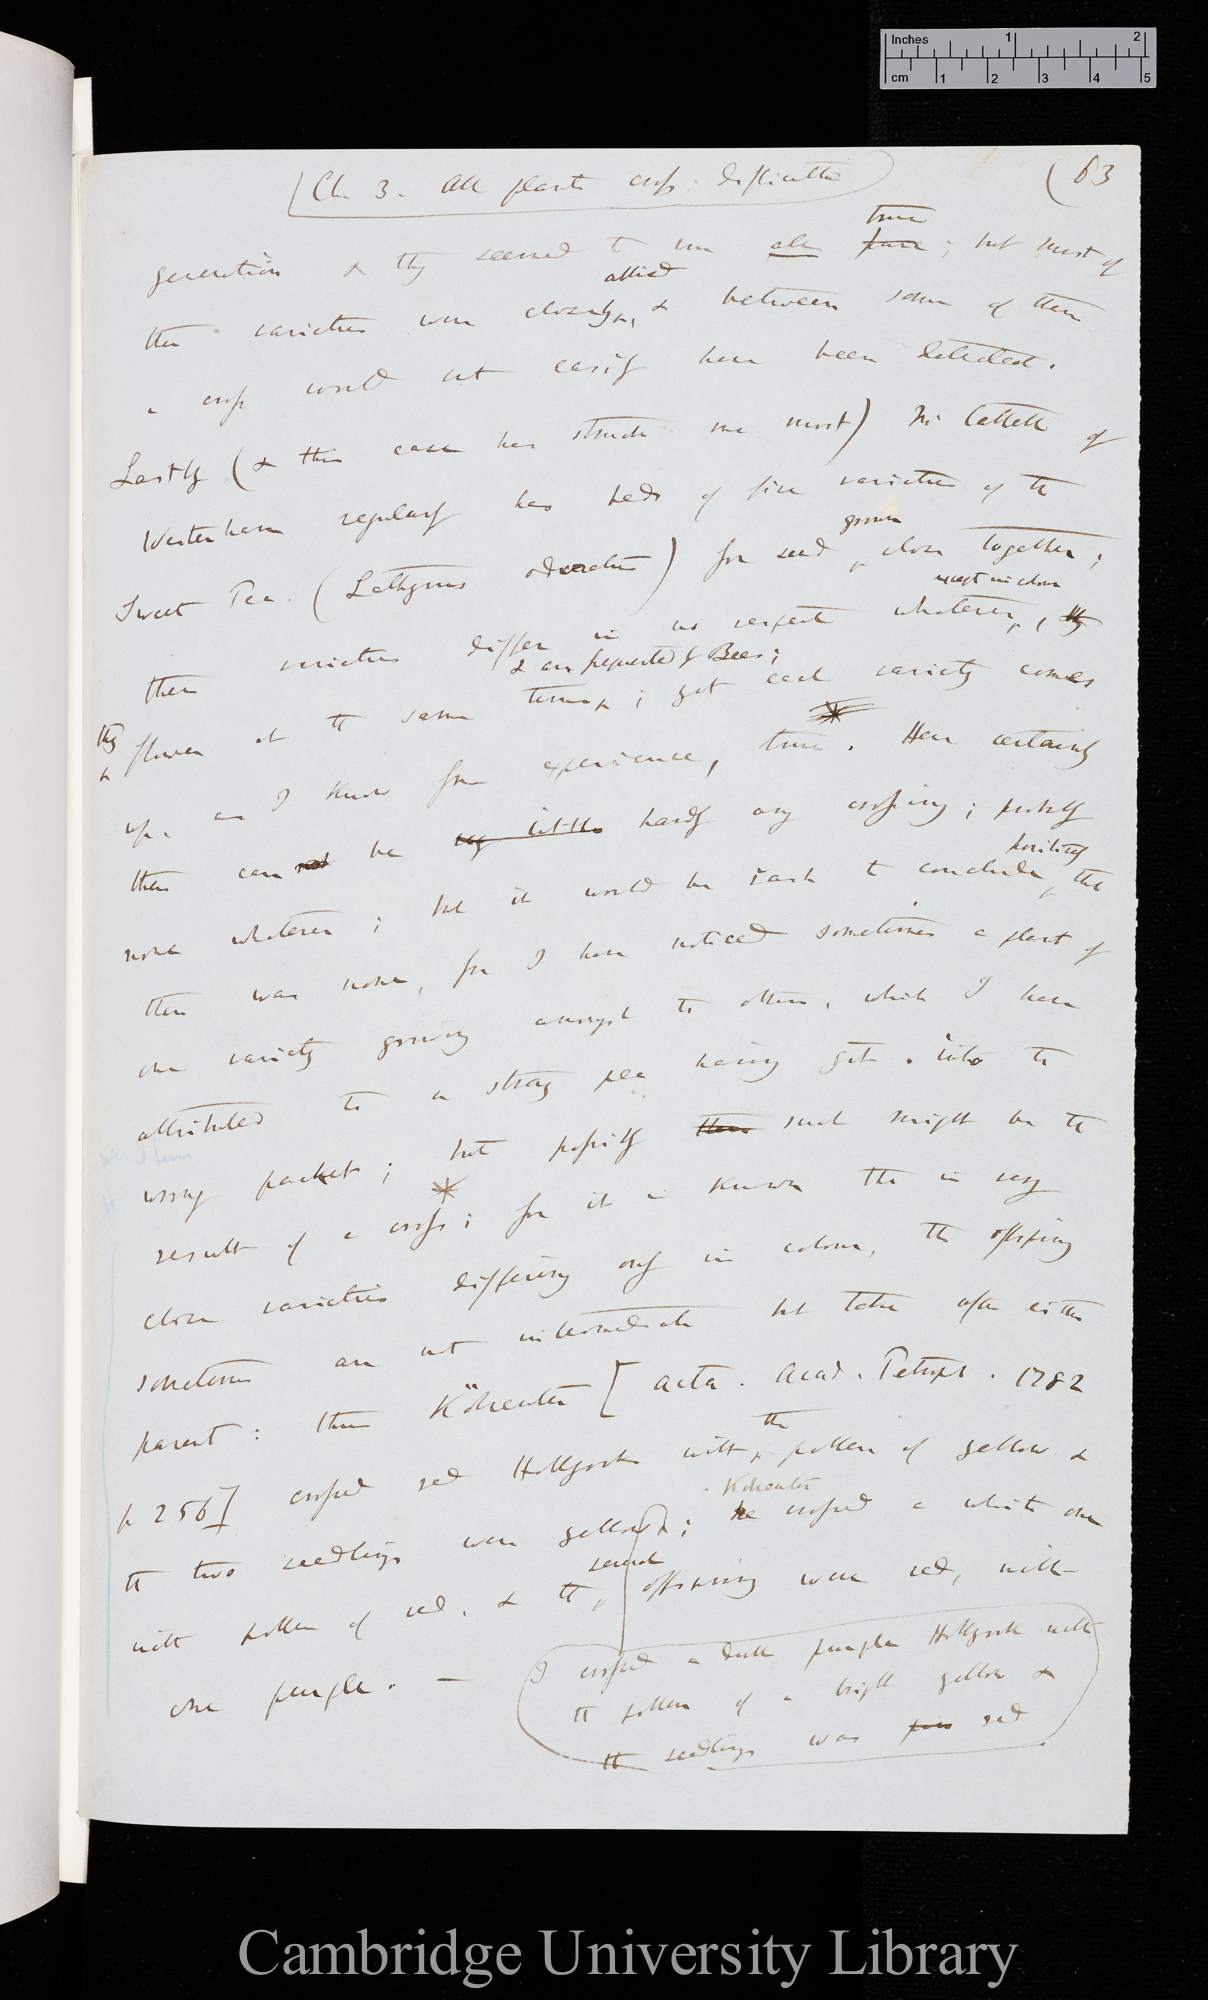 Inches 1 2
cm 1 2 3 4 5
Ch. 3. All plants cross: difficulties
(63
true
generation & they seemed to him all pure; but most of
allied
the varieties were closely, & between some of them
a cross would not easily have been detected.
Lastly (& this case has struck me most) Mr Cattell of
Westerham regularly has beds of five varieties of the
grown
Sweet Pea. (Lathyrus odoratus) for seed close together;
except in colour
these varieties differ in no respect whatever, they
& are frequented by Bees;
they flower at the same time; yet each variety comes
up, as I know from experience, true. Here certainly
there can not be very little hardly any crossing; probably
positively
none whatever; but it would be rash to conclude that
there was none, for I have noticed sometimes a plant of
one variety growing amongst the others, which I have
attributed to a stray pea having got into the
wrong packet; but possibly these such might be the
result of a cross; for it is known that in very
close varieties differing only in colour, the offspring
sometimes are not intermediate but take after either
parent: thus Kölreuter [Acta. Acad. Petrop. 1782
the
p 256] crossed red Hollyocks with pollen of yellow &
Kolreuter
the two seedlings were yellow; he crossed a white one
several
with pollen of red, & the offspring were red, with
one purple. —
I crossed a dark purple Hollyock with
the pollen of a bright yellow &
the seedlings was red
Cambridge University Library